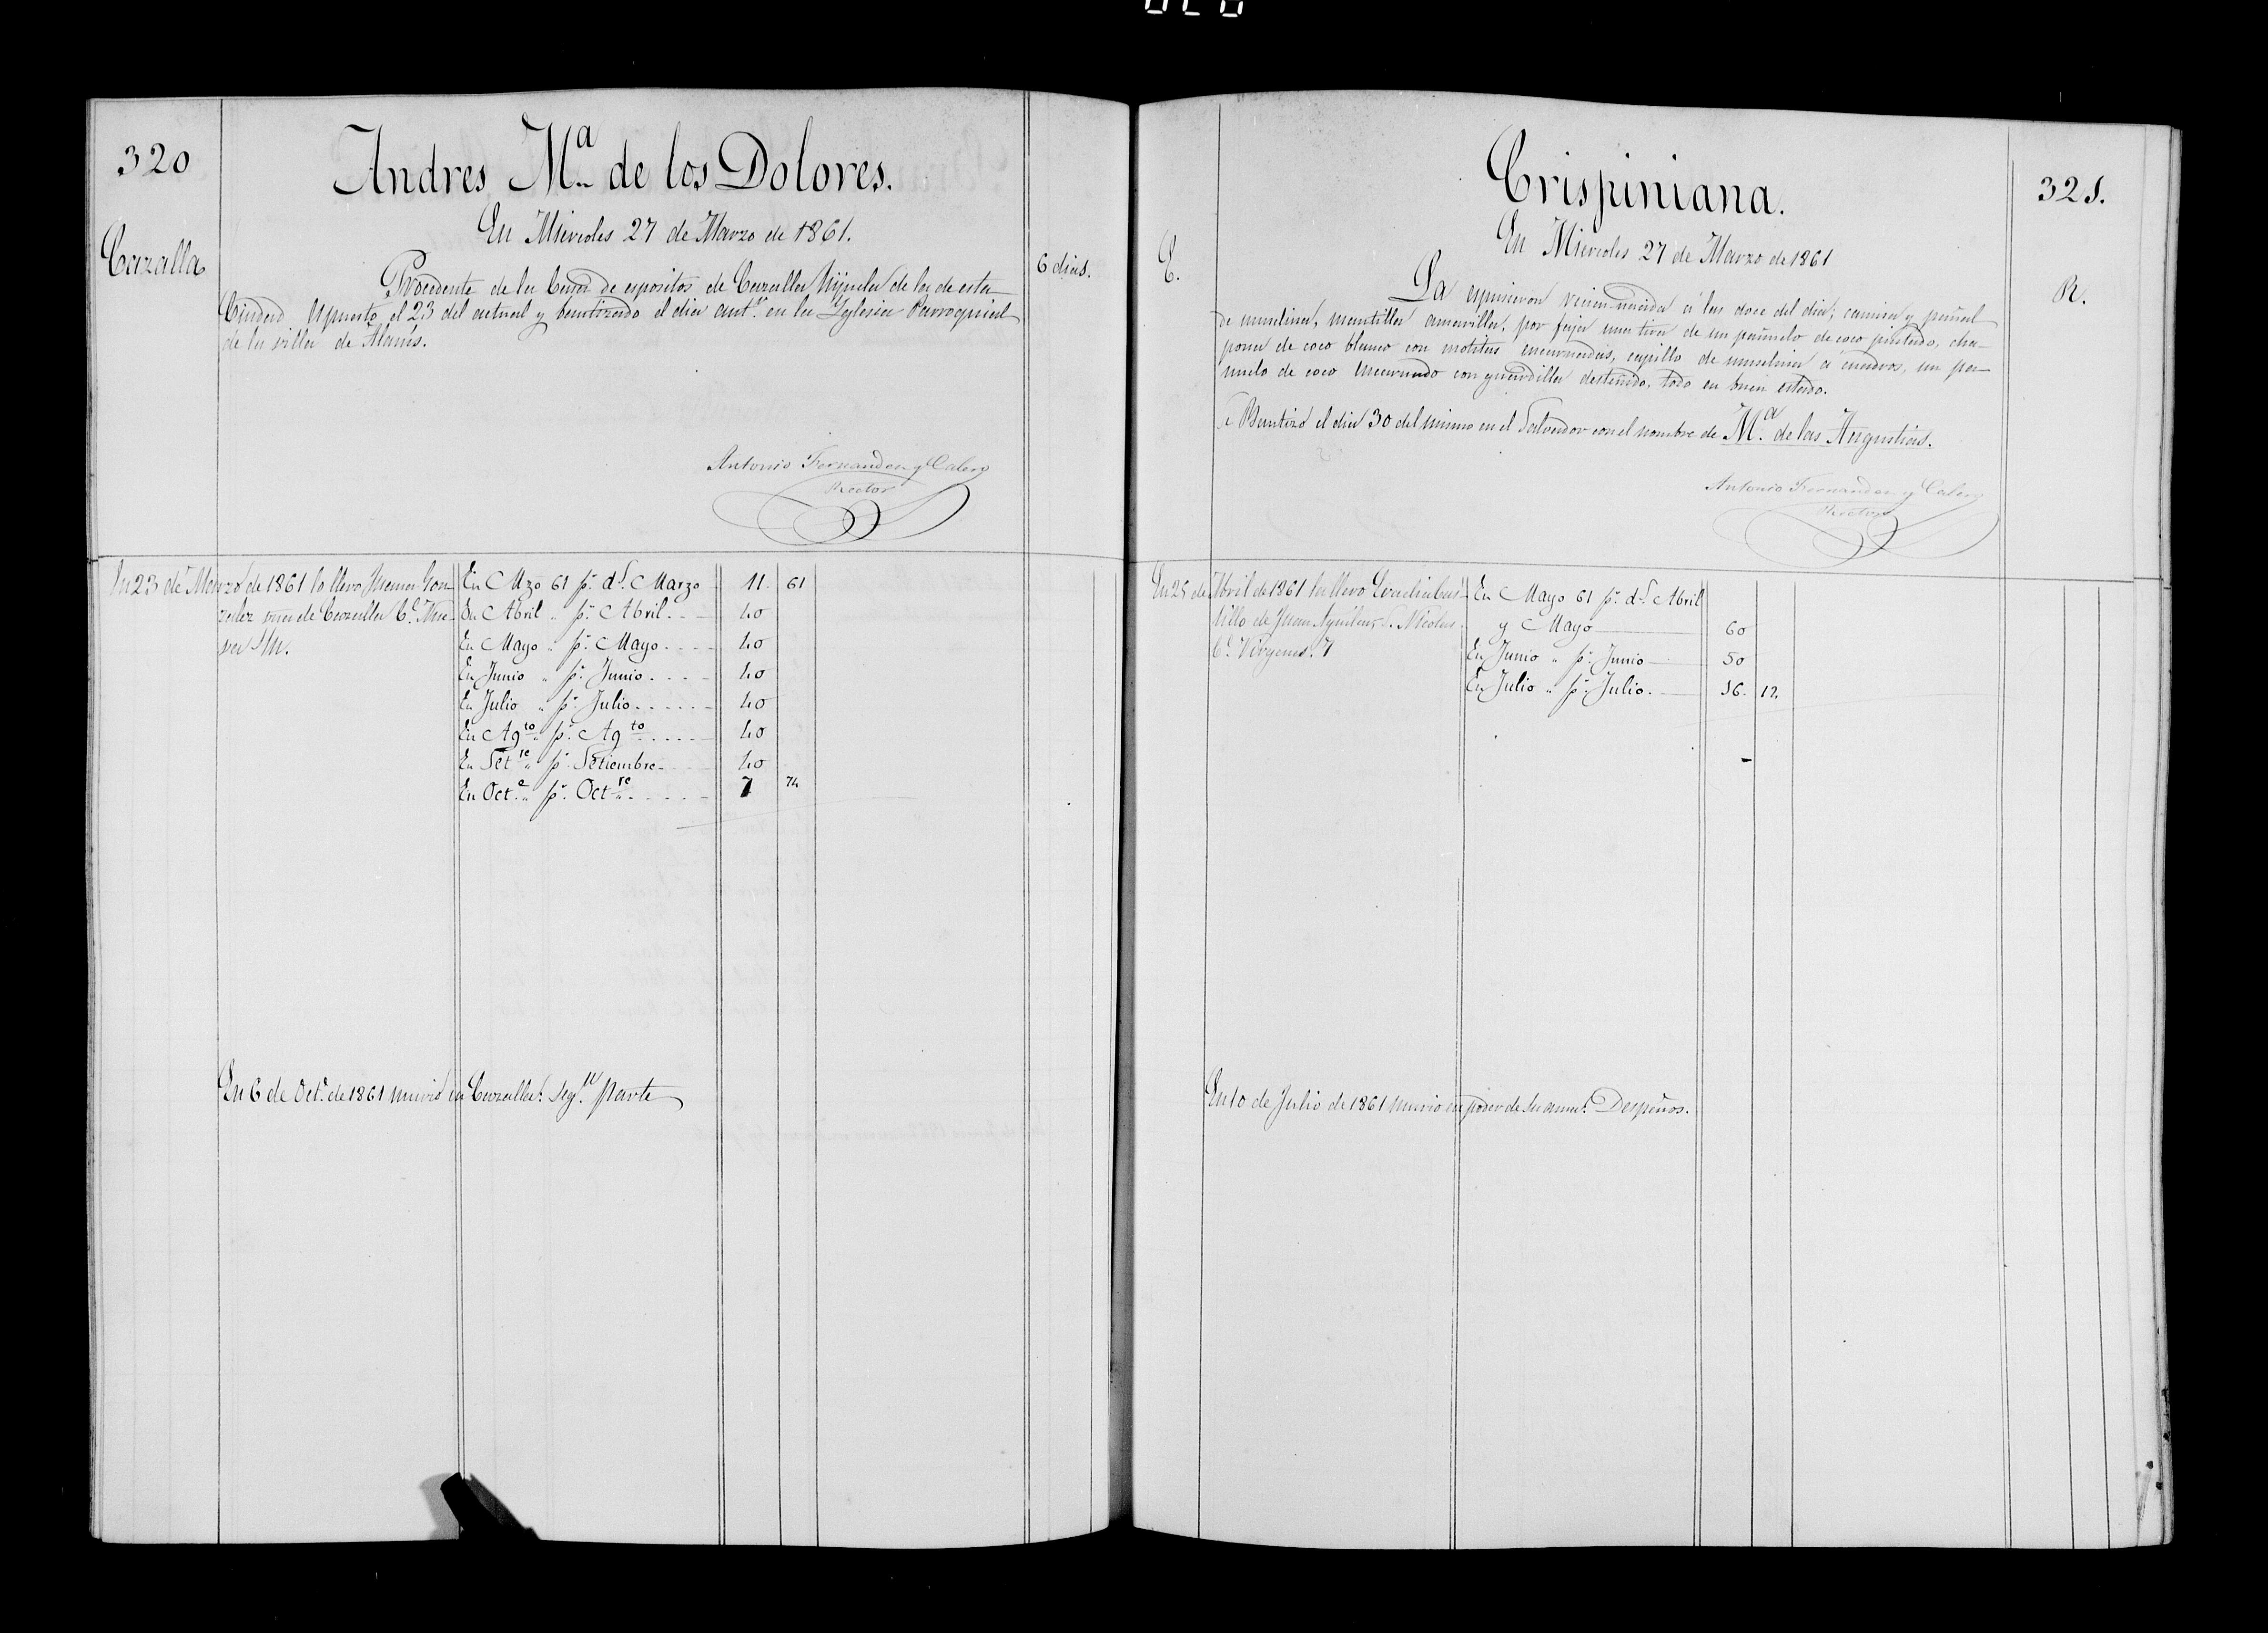 320
Andres Mª de los Dolores.
En Miercoles 27 de Marzo de 1861.
Cazalla
6 dias.
Procedente de la Casa de espositos de Cazalla hijuela de la de esta
Ciudad espuesto el 23 del actual y bautizado el dia antr. en la Yglesia Parroquial
de la villa de Alanis.
Antonio Fernandez y Calero
Rector
En 23 de Marzo de 1861 lo llevo Juana Gon-
zalez vna de Cazalla Ce.
En Mzo 61 pr. dl. Marzo 11. 61
En Abril " pr. Abril. 40
En Mayo " pr. Mayo. 40
En Junio " pr. Junio. 40
En Julio " pr. Julio. 40
En Agto " pr. Agto. 40
En Setre " pr. Setiembre 40
En Octe. " pr. Octre. 7 74
En 6 de Octe. de 1861 murio en Cazalla. Segn. parte
Crispiniana.
321.
En Miercoles 27 de Marzo de 1861
E.
R.
La espusieron recien-nacida á las doce del dia; camisa y pañal
de muselina, mantilla amarilla, por faja una tira de un pañuelo de coco pintado, cha-
pona de coco blanco con motitas encarnadas, capillo de muselina á cuadros, un pa-
ñuelo de coco encarnado con guardilla desteñido, todo en buen estado.
Se Bautizó el dia 30 del mismo en el Salvador con el nombre de Mª. de las Angustias.
Antonio Fernandez y Calero
Rector
En 25 de Abril de 1861 la llevo
de Juan Aguilar, S. Nicolas.
Ce. Virgenes. 7
En Mayo 61 pr. dl. Abril
y Mayo 60
En Junio " pr. Junio 50
En Julio " pr. Julio. 16. 12.
En 10 de Julio de 1861 murio en poder de su ama. Despeños.